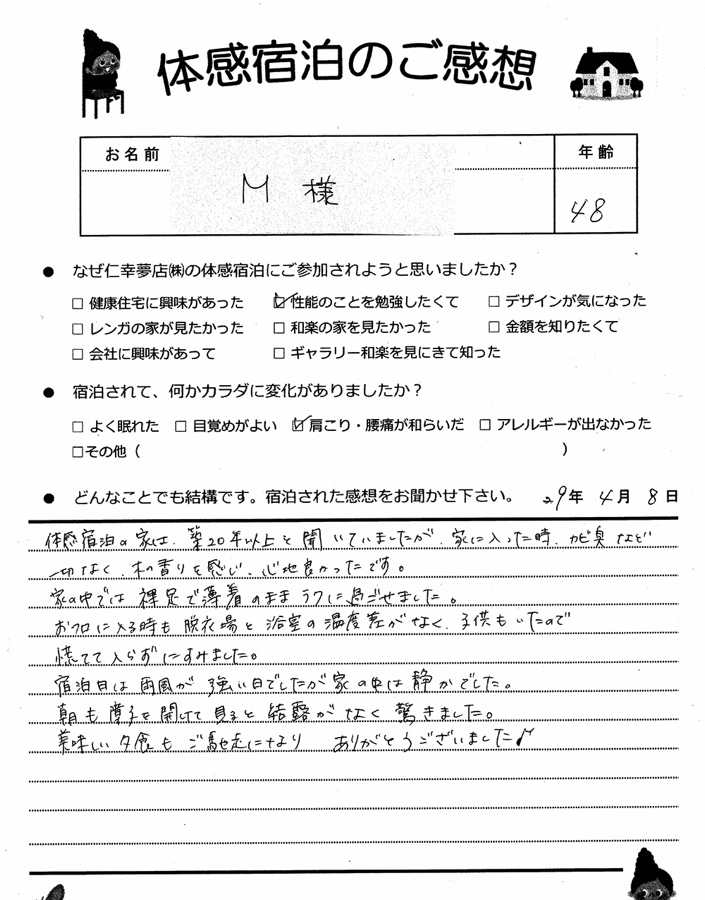 体感宿泊のご感想
お名前 年齢
M 様 48
● なぜ仁幸夢店㈱の体感宿泊にご参加されようと思いましたか？
□ 健康住宅に興味があった ☑ 性能のことを勉強したくて □ デザインが気になった
□ レンガの家が見たかった □ 和楽の家を見たかった □ 金額を知りたくて
□ 会社に興味があって □ ギャラリー和楽を見にきて知った
● 宿泊されて、何かカラダに変化がありましたか？
□ よく眠れた □ 目覚めがよい ☑ 肩こり・腰痛が和らいだ □ アレルギーが出なかった
□その他（ ）
● どんなことでも結構です。宿泊された感想をお聞かせ下さい。 29年 4月 8日
体感宿泊の家は、築20年以上と聞いていましたが、家に入った時、カビ臭など
一切なく、木の香りを感じ、心地良かったです。
家の中では裸足で薄着のままラフに過ごせました。
お風呂に入る時も脱衣場と浴室の温度差がなく、子供もいたので
慌てて入らずにすみました。
宿泊日は雨風が強い日でしたが家の中は静かでした。
朝も障子を開けて見ると結露がなく驚きました。
美味しい夕食もご馳走になり ありがとうございました♪